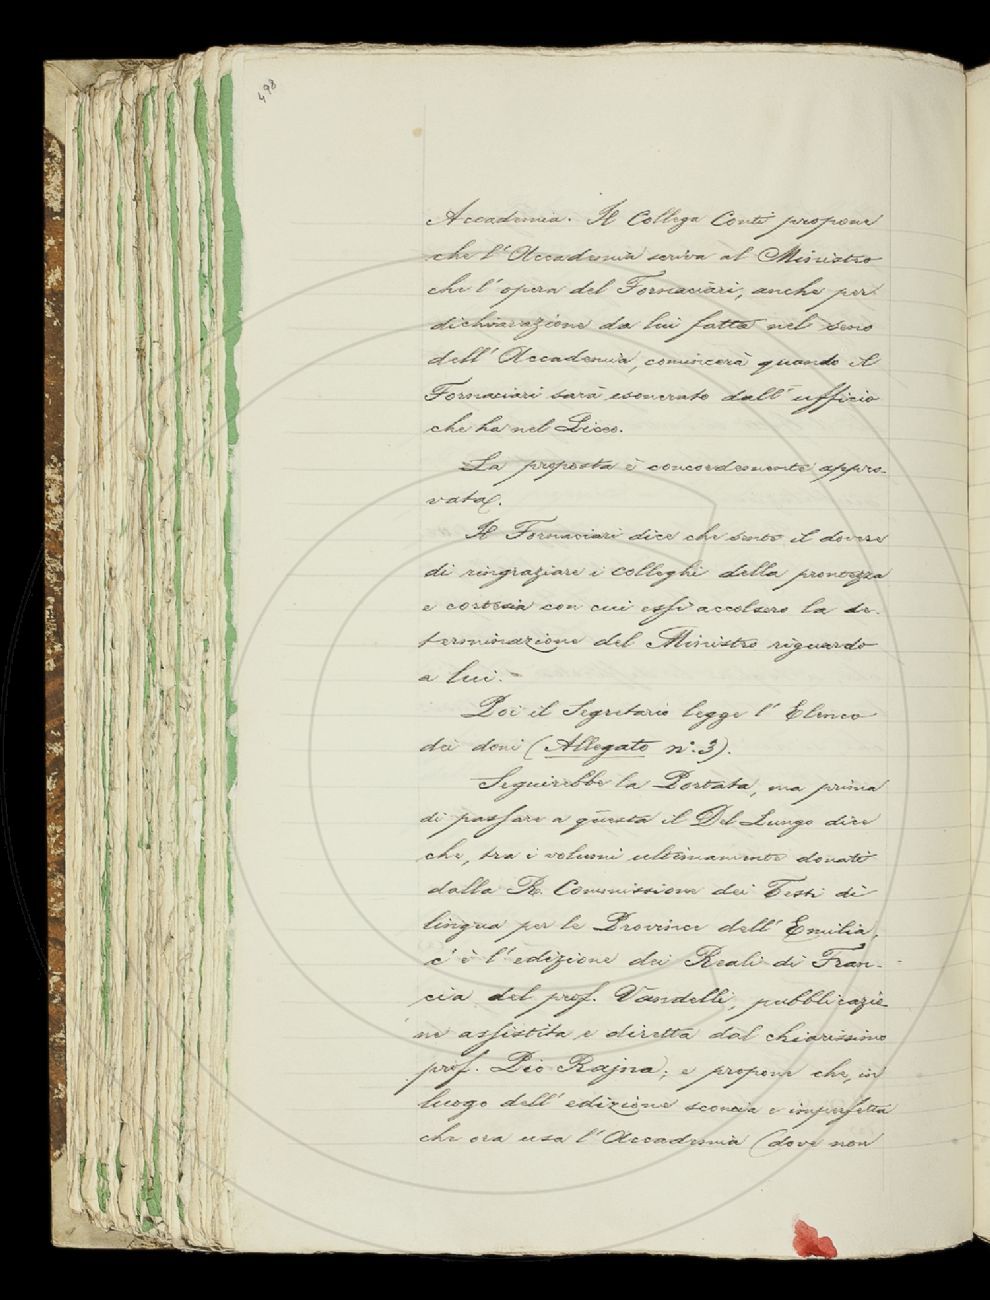 498
Accademia. Il Collega Conti propone
che l'Accademia scriva al Ministro
che l'opera del Fornaciari, anche per
dichiarazione da lui fatta nel seno
dell'Accademia, comincerà quando il
Fornaciari sarà esonerato dall'ufficio
che ha nel Liceo.
La proposta è concordemente appro-
vata.
Il Fornaciari dice che sente il dovere
di ringraziare i colleghi della prontezza
e cortesia con cui essi accolsero la de-
terminazione del Ministro riguardo
a lui.-
Poi il Segretario legge l'Elenco
dei doni (Allegato n.° 3).
Seguirebbe la Portata, ma prima
di passare a questa il Del Lungo dice
che, tra i volumi ultimamente donati
dalla R. Commissione dei Testi di
lingua per le Province dell'Emilia,
c'è l'edizione dei Reali di Fran-
cia del prof. Vandelli, pubblicazio-
ne assistita e diretta dal chiarissimo
prof. Pio Rajna; e propone che, in
luogo dell'edizione sconcia e imperfetta
che ora usa l'Accademia (dove non